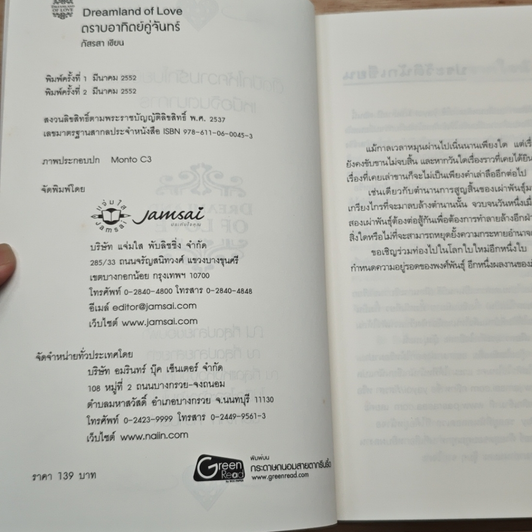 Dreamland of Love
ตราบอาทิตย์คู่จันทร์
ภัสรสา เขียน
พิมพ์ครั้งที่ 1 มีนาคม 2552
พิมพ์ครั้งที่ 2 มีนาคม 2552
สงวนลิขสิทธิ์ตามพระราชบัญญัติลิขสิทธิ์ พ.ศ. 2537
เลขมาตรฐานสากลประจำหนังสือ ISBN 978-611-06-0045-3
ภาพประกอบปก Monto C3
จัดพิมพ์โดย
แจ่มใส
Jamsai
jamsai
บริษัท แจ่มใส พับลิชชิ่ง จำกัด
285/33 ถนนจรัญสนิทวงศ์ แขวงบางขุนศรี
เขตบางกอกน้อย กรุงเทพฯ 10700
โทรศัพท์ 0-2840-4800 โทรสาร 0-2840-4848
อีเมล์ editor@jamsai.com
เว็บไซต์ www.jamsai.com
จัดจำหน่ายทั่วประเทศโดย
บริษัท อมรินทร์ บุ๊ค เซ็นเตอร์ จำกัด
108 หมู่ที่ 2 ถนนบางกรวย-จงถนอม
ตำบลมหาสวัสดิ์ อำเภอบางกรวย จ.นนทบุรี 11130
โทรศัพท์ 0-2423-9999 โทรสาร 0-2449-9561-3
เว็บไซต์ www.naiin.com
ราคา 139 บาท
Green Read
พิมพ์บน
กระดาษถนอมสายตากรีนรี้ด
www.greenread.com
แม้กาลเวลาหมุนผ่านไปเนิ่นนานเพียงใด แต่เรื่
ยังคงขับขานไม่จบสิ้น และหากวันใดเรื่องราวที่เคยได้ยิน
เรื่องที่เคยเล่าขานก็จะไม่เป็นเพียงคำเล่าลืออีกต่อไป
เช่นเดียวกับตำนานการสูญสิ้นของเผ่าพันธุ์ม
เกรียงไกรที่จะมาลบล้างตำนานนั้น จวบจนวันหนึ่งเมื่
สองเผ่าพันธุ์ต้องต่อสู้กันเพื่อต้องการทำลายล้างอีกฝ่
สิ่งใดหรือไม่ที่จะสามารถหยุดยั้งความกระหายอำนาจ
ขอเชิญร่วมท่องไปในโลกใบใหม่อีกหนึ่งใบ
กำหนดความอยู่รอดของพงศ์พันธุ์ อีกหนึ่งผลงานของ